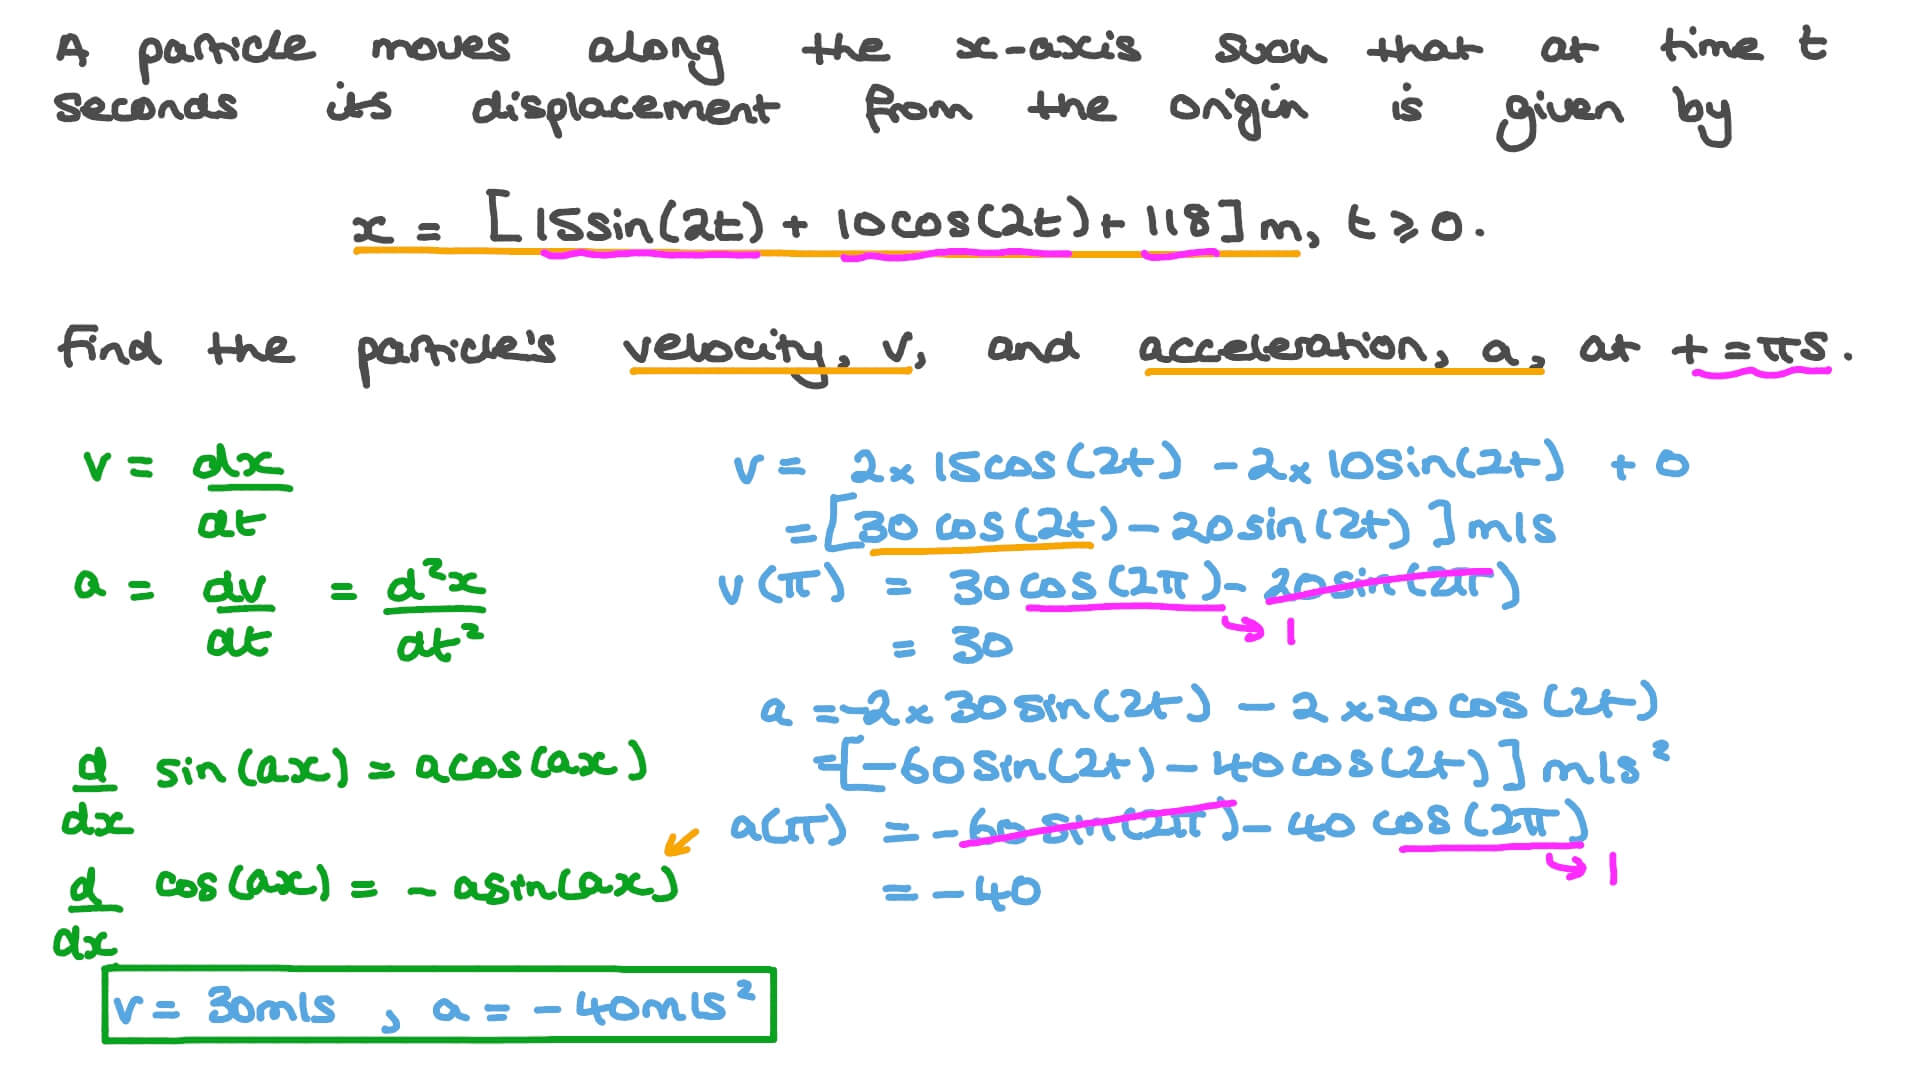 A particle moves along the x-axis such that at time t
seconds its displacement from the origin is given by
x = [15sin(2t) + 10cos(2t) + 118] m, t ⩾ 0.
Find the particle's velocity, v, and acceleration, a, at t = πs.
v = dx/dt
a = dv/dt = d²x/dt²
d/dx sin(ax) = acos(ax)
d/dx cos(ax) = - asin(ax)
v = 2 x 15cos(2t) - 2 x 10sin(2t) + 0
= [30 cos(2t) - 20sin(2t)] m/s
v(π) = 30 cos(2π) - 20sin(2π)
→ 1
= 30
a = -2 x 30 sin(2t) - 2 x 20 cos(2t)
= [-60sin(2t) - 40cos(2t)] m/s²
a(π) = - 60 sin(2π) - 40 cos(2π)
→ 1
= - 40
v = 30m/s , a = - 40m/s²